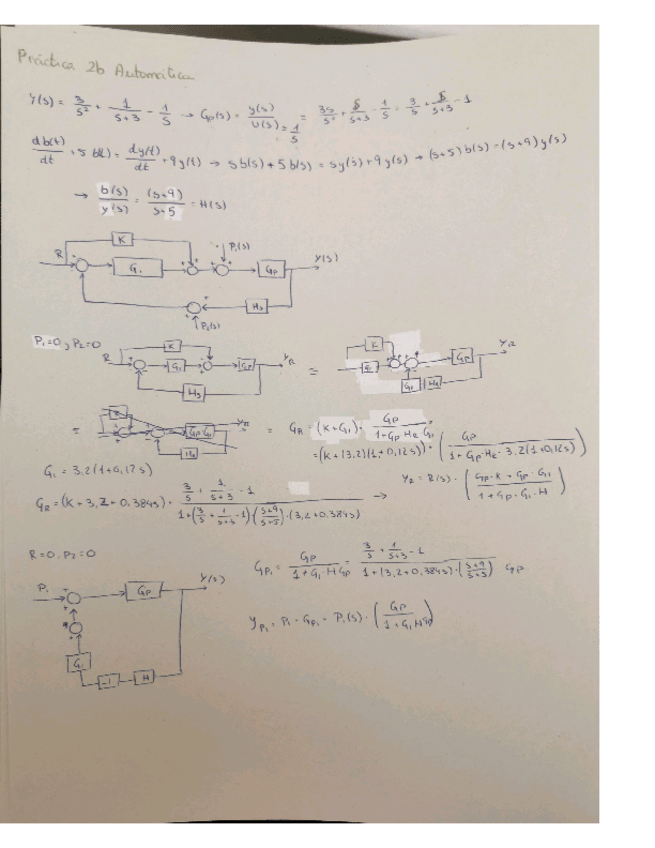 Práctica 2b Automática
Y(s) = 3/s² + 1/(s+3) - 1/s → Gp(s) = y(s)/U(s) = 1/s = 3s/s² + s/(s+3) - 1/s = 3/s + s/(s+3) - 1
db(t)/dt + 5 b(t) = dy(t)/dt + 9y(t) → s b(s) + 5 b(s) = s y(s) + 9 y(s) → (s+5) b(s) = (s+9) y(s)
→ b(s)/y(s) = (s+9)/(s+5) = H(s)
K P₁(s)
R G₁ Gp Y(s)
H₂
P₂(s)
P₁=0, P₂=0 R K G₁ Gp Y_R H₂ ≡ K G₁ Gp Y_R G₁ H₂
= K Gp G₁ Y_R H₂ = G_R = (K+G₁) · Gp/(1+Gp·H₂·G₁)
= (K+(3,2)(1+0,12s)) · (Gp/(1+Gp·H₂·3,2(1+0,12s)))
G₁ = 3,2(1+0,12s)
G_R = (K+3,2+0,384s) · (3/s + 1/(s+3) - 1)/(1+(3/s + 1/(s+3) - 1)((s+9)/(s+5))·(3,2+0,384s)) → Y_R = R(s) · ((Gp·K + Gp·G₁)/(1+Gp·G₁·H))
R=0, P₂=0
P₁ Gp Y(s)
G -1 H
Gp₁ = Gp/(1+G₁·H Gp) = (3/s + 1/(s+3) - 1)/(1+(3,2+0,384s)·((s+9)/(s+5)) Gp
Yp₁ = P₁·Gp₁ = P₁(s) · (Gp/(1+G₁HGp))